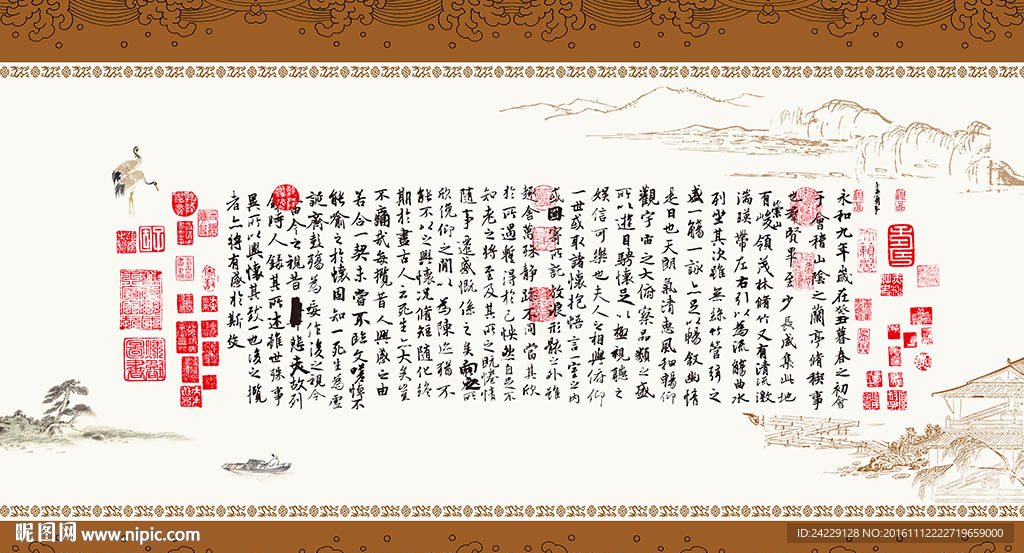 永和九年歲在癸丑暮春之初會
于會稽山陰之蘭亭脩稧事
也羣賢畢至少長咸集此地
有崇山峻領茂林脩竹又有清流激
湍暎帶左右引以為流觴曲水
列坐其次雖無絲竹管弦之
盛一觴一詠亦足以暢敘幽情
是日也天朗氣清惠風和暢仰
觀宇宙之大俯察品類之盛
所以遊目騁懷足以極視聽之
娛信可樂也夫人之相與俯仰
一世或取諸懷抱悟言一室之內
或因寄所託放浪形骸之外雖
趣舍萬殊靜躁不同當其欣
於所遇蹔得於己怏然自足不
知老之將至及其所之既惓情
隨事遷感慨係之矣向之所
欣俛仰之閒以為陳迹猶不
能不以之興懷況脩短隨化終
期於盡古人云死生亦大矣豈
不痛哉每攬昔人興感之由
若合一契未嘗不臨文嗟悼不
能喻之於懷固知一死生為虛
誕齊彭殤為妄作後之視今
亦由今之視昔悲夫故列
敘時人錄其所述雖世殊事
異所以興懷其致一也後之攬
者亦將有感於斯文
昵图网 www.nipic.com
ID:24229128 NO:20161112222719659000